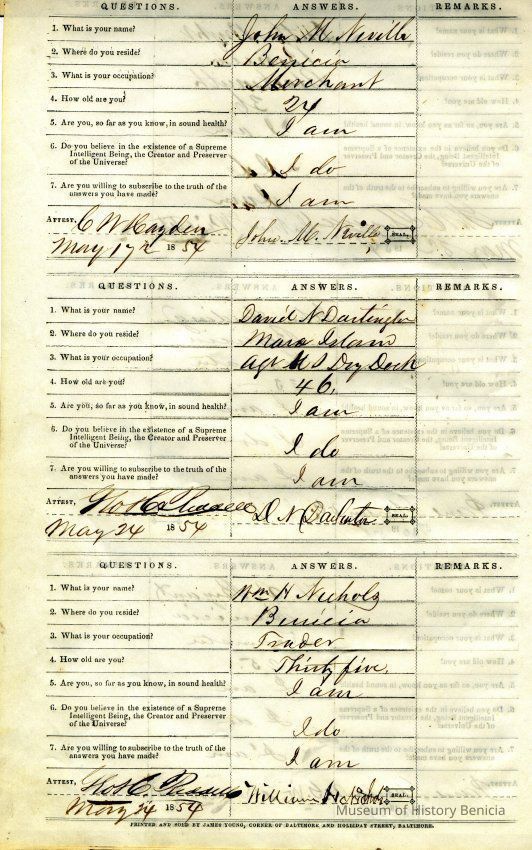 QUESTIONS. ANSWERS. REMARKS.
1. What is your name? John M. Neville
2. Where do you reside? Benicia
3. What is your occupation? Merchant
4. How old are you?
5. Are you, so far as you know, in sound health? I am
6. Do you believe in the existence of a Supreme
Intelligent Being, the Creator and Preserver
of the Universe? I do
7. Are you willing to subscribe to the truth of the
answers you have made? I am
ATTEST, C W Hayden
May 17th 1854 John. M. Neville SEAL.
QUESTIONS. ANSWERS. REMARKS.
1. What is your name? David N Darlington
2. Where do you reside? Mare Island
3. What is your occupation? Agt U S Dry Dock
4. How old are you? 46.
5. Are you, so far as you know, in sound health? I am
6. Do you believe in the existence of a Supreme
Intelligent Being, the Creator and Preserver
of the Universe? I do
7. Are you willing to subscribe to the truth of the
answers you have made? I am
ATTEST, D N Darlington SEAL.
May 24 1854
QUESTIONS. ANSWERS. REMARKS.
1. What is your name? Wm H Nichols
2. Where do you reside? Benicia
3. What is your occupation? Trader
4. How old are you? Thirty five.
5. Are you, so far as you know, in sound health? I am
6. Do you believe in the existence of a Supreme
Intelligent Being, the Creator and Preserver
of the Universe? I do
7. Are you willing to subscribe to the truth of the
answers you have made? I am
ATTEST, William H Nichols SEAL.
May 24 1854
Museum of History Benicia
PRINTED AND SOLD BY JAMES YOUNG, CORNER OF BALTIMORE AND HOLLIDAY STREET, BALTIMORE.